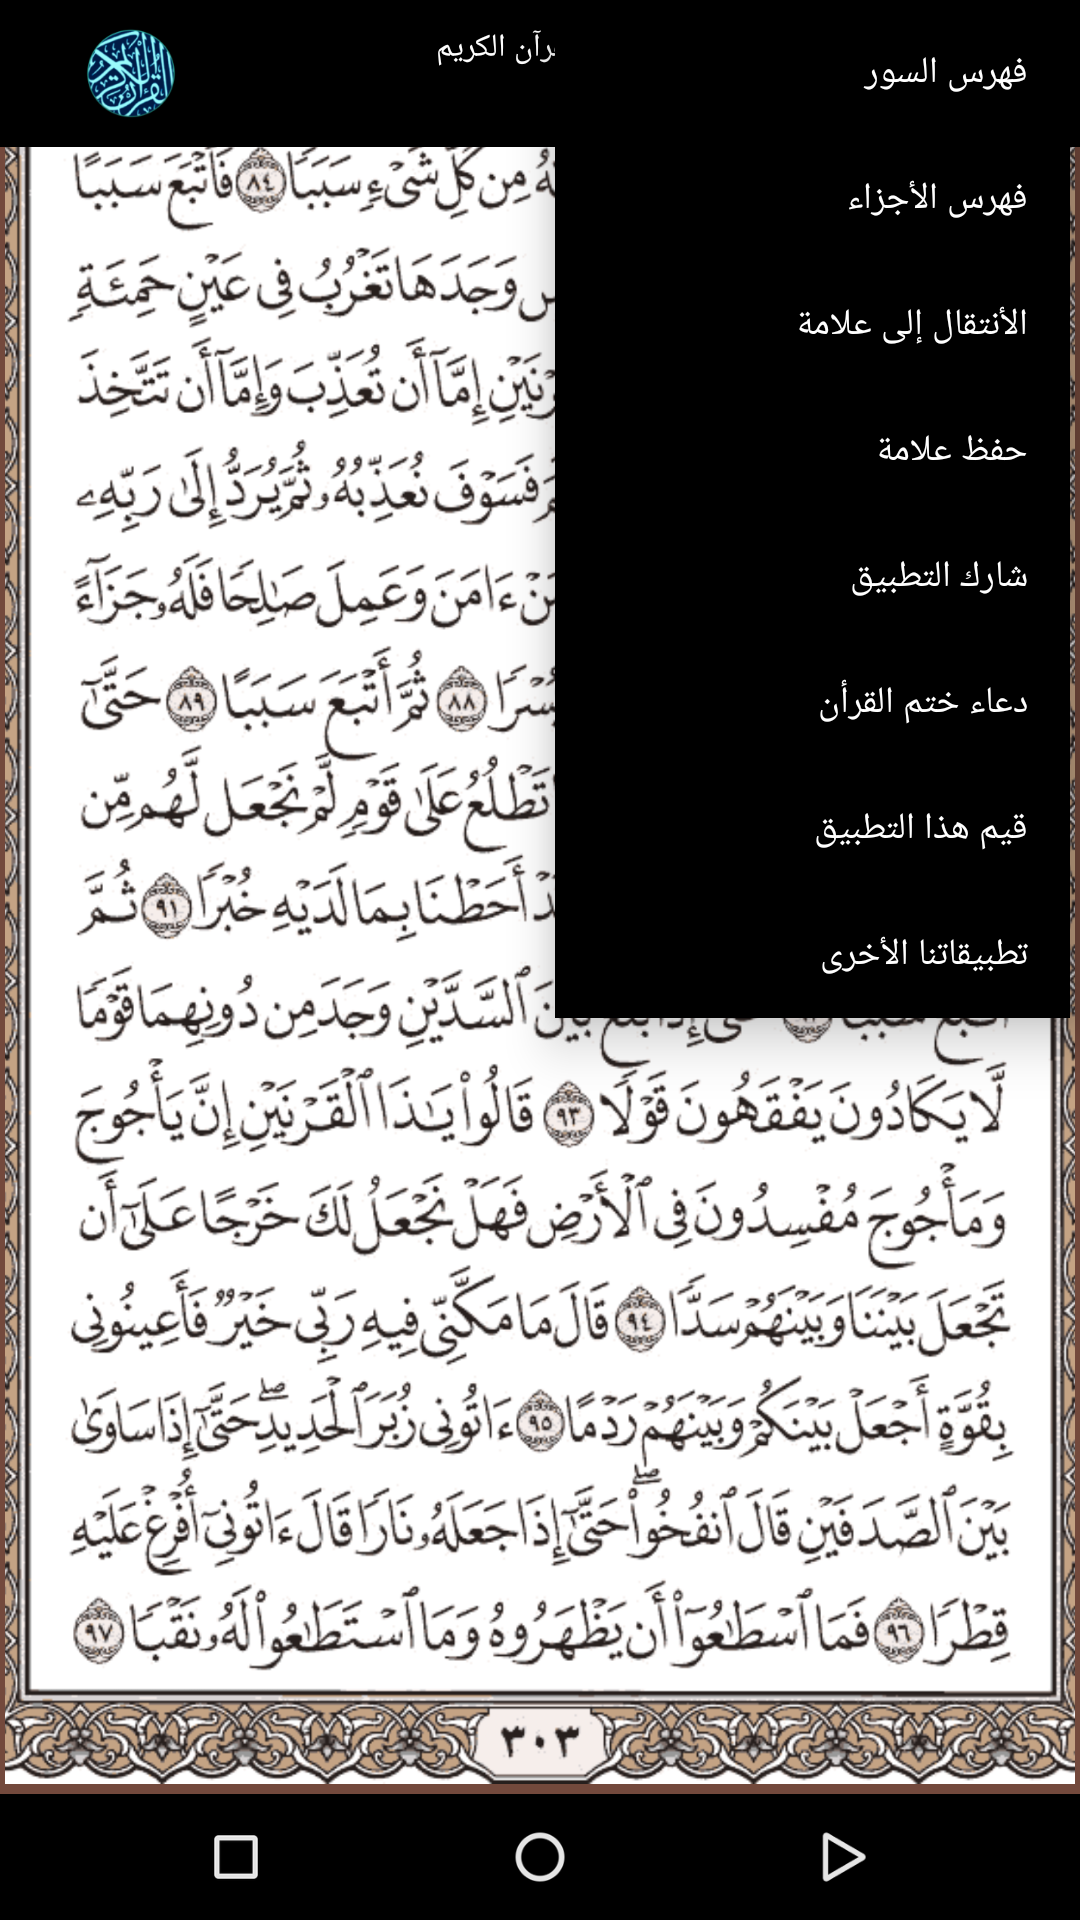 رآن الكريم
فهرس السور
فهرس الأجزاء
الأنتقال إلى علامة
حفظ علامة
شارك التطبيق
دعاء ختم القرأن
قيم هذا التطبيق
تطبيقاتنا الأخرى
مِن كُلِّ شَىْءٍ سَبَبًا ٨٤ فَأَتْبَعَ سَبَبًا
وَجَدَهَا تَغْرُبُ فِى عَيْنٍ حَمِئَةٍ
إِمَّآ أَن تُعَذِّبَ وَإِمَّآ أَن تَتَّخِذَ
فَسَوْفَ نُعَذِّبُهُۥ ثُمَّ يُرَدُّ إِلَىٰ رَبِّهِۦ
ءَامَنَ وَعَمِلَ صَٰلِحًا فَلَهُۥ جَزَآءً
٨٨ ثُمَّ أَتْبَعَ سَبَبًا ٨٩ حَتَّىٰٓ
تَطْلُعُ عَلَىٰ قَوْمٍ لَّمْ نَجْعَل لَّهُم مِّن
أَحَطْنَا بِمَا لَدَيْهِ خُبْرًا ٩١ ثُمَّ
ٱلسَّدَّيْنِ وَجَدَ مِن دُونِهِمَا قَوْمًا
لَّا يَكَادُونَ يَفْقَهُونَ قَوْلًا ٩٣ قَالُوا۟ يَٰذَا ٱلْقَرْنَيْنِ إِنَّ يَأْجُوجَ
وَمَأْجُوجَ مُفْسِدُونَ فِى ٱلْأَرْضِ فَهَلْ نَجْعَلُ لَكَ خَرْجًا عَلَىٰٓ أَن
تَجْعَلَ بَيْنَنَا وَبَيْنَهُمْ سَدًّا ٩٤ قَالَ مَا مَكَّنِّى فِيهِ رَبِّى خَيْرٌ فَأَعِينُونِى
بِقُوَّةٍ أَجْعَلْ بَيْنَكُمْ وَبَيْنَهُمْ رَدْمًا ٩٥ ءَاتُونِى زُبَرَ ٱلْحَدِيدِ ۖ حَتَّىٰٓ إِذَا سَاوَىٰ
بَيْنَ ٱلصَّدَفَيْنِ قَالَ ٱنفُخُوا۟ ۖ حَتَّىٰٓ إِذَا جَعَلَهُۥ نَارًا قَالَ ءَاتُونِىٓ أُفْرِغْ عَلَيْهِ
قِطْرًا ٩٦ فَمَا ٱسْطَٰعُوٓا۟ أَن يَظْهَرُوهُ وَمَا ٱسْتَطَٰعُوا۟ لَهُۥ نَقْبًا ٩٧
٣٠٣